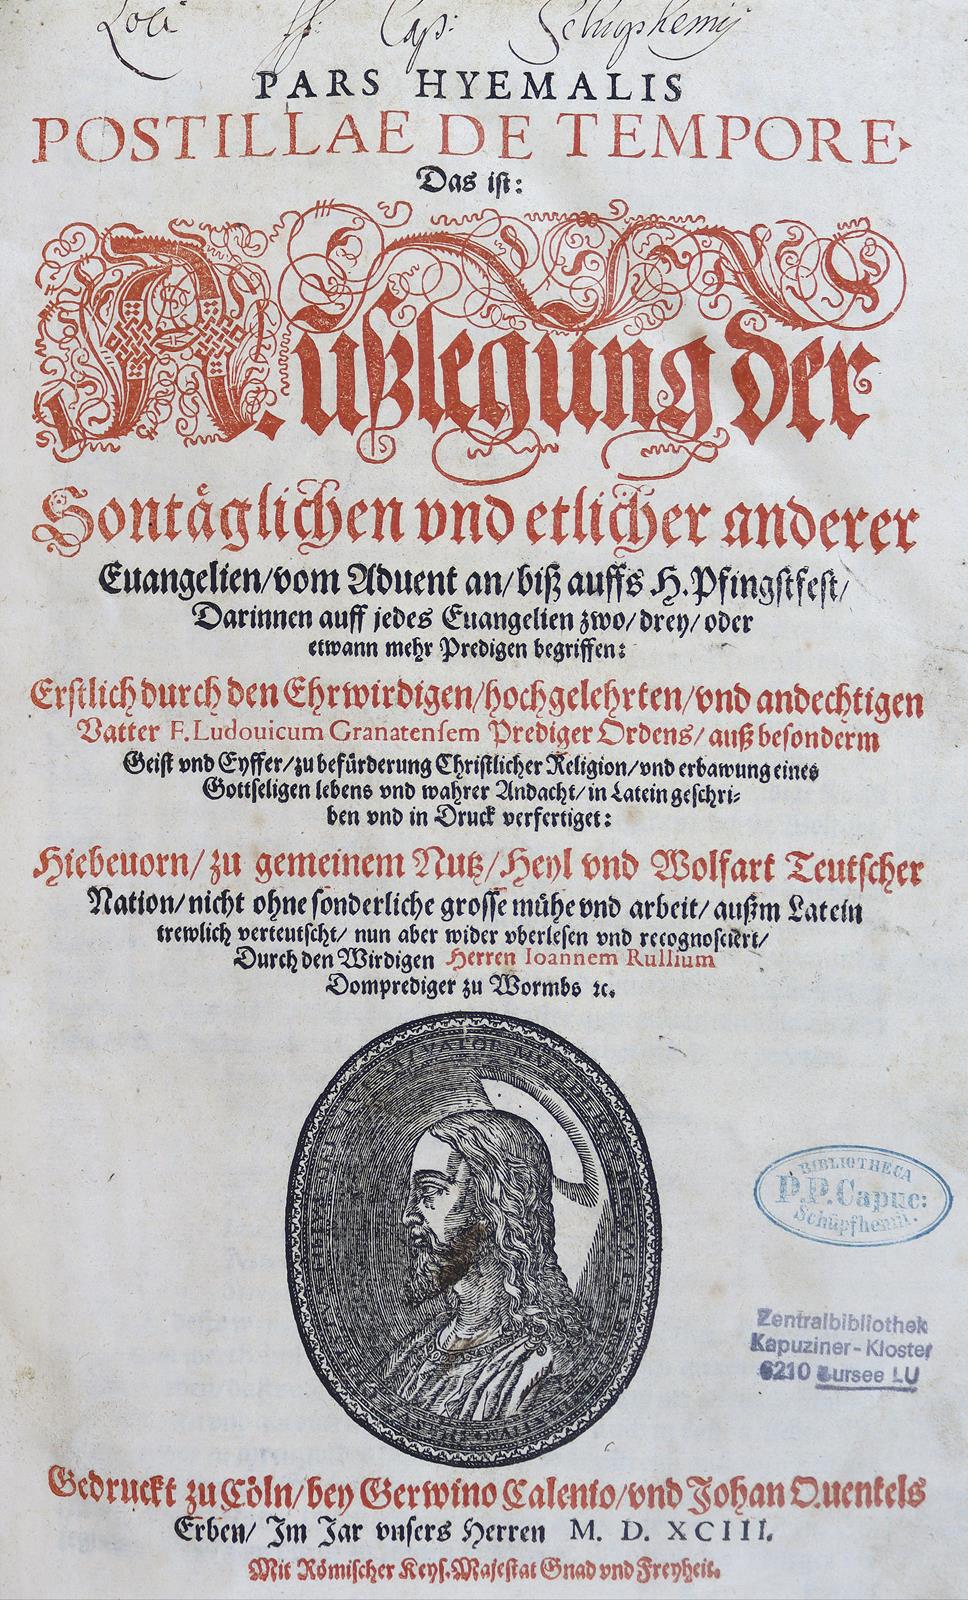 Loci ff: Cap: Schüphemij
PARS HYEMALIS
POSTILLAE DE TEMPORE.
Das ist:
Außlegung der
Sontäglichen vnd etlicher anderer
Euangelien/ vom Aduent an/ biß auffs H. Pfingstfest/
Darinnen auff jedes Euangelien zwo/ drey/ oder
etwann mehr Predigen begriffen:
Erstlich durch den Ehrwirdigen/ hochgelehrten/ vnd andechtigen
Vatter F. Ludouicum Granatensem Prediger Ordens/ auß besonderm
Geist vnd Eyffer/ zu befürderung Christlicher Religion/ vnd erbawung eines
Gottseligen lebens vnd wahrer Andacht/ in Latein geschri-
ben vnd in Druck verfertiget:
Hiebeuorn/ zu gemeinem Nutz/ Heyl vnd Wolfart Teutscher
Nation/ nicht ohne sonderliche grosse mühe vnd arbeit/ außm Latein
trewlich verteutscht/ nun aber wider vberlesen vnd recognosciert/
Durch den Wirdigen Herren Ioannem Rullium
Domprediger zu Wormbs ꝛc.
BIBLIOTHECA
P.P. Capuc:
Schüpfhemii.
Zentralbibliothek
Kapuziner-Kloster
6210 Sursee LU
Gedruckt zu Cöln/ bey Gerwino Calenio/ vnd Johan Quentels
Erben/ Im Jar vnsers Herren M. D. XCIII.
Mit Römischer Keys. Majestat Gnad vnd Freyheit.